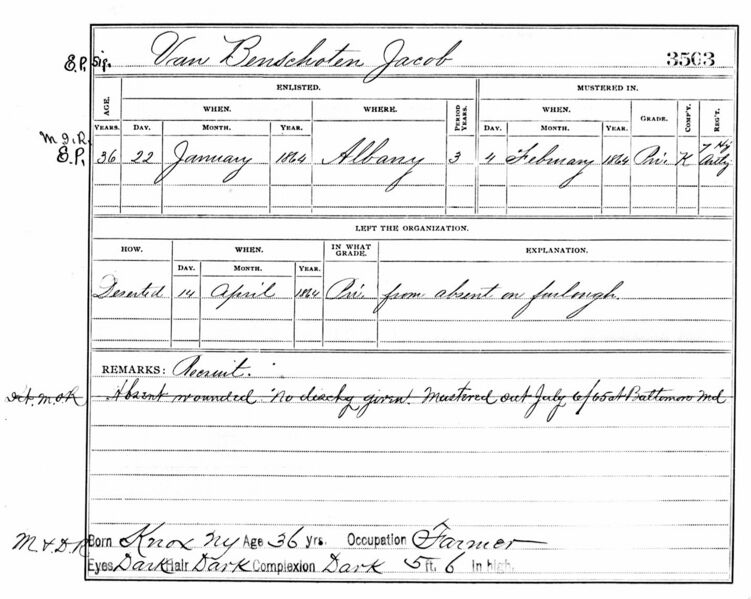 E.P. sig. Van Benschoten Jacob 3503
AGE. ENLISTED. MUSTERED IN.
WHEN. WHERE. PERIOD YEARS. WHEN. GRADE. COMP'Y. REG'T.
YEARS. DAY. MONTH. YEAR. DAY. MONTH. YEAR.
7 Hy
E.P. 36 22 January 1864 Albany 3 4 February 1864 Pri. K Arty
LEFT THE ORGANIZATION.
HOW. WHEN. IN WHAT GRADE. EXPLANATION.
DAY. MONTH. YEAR.
Deserted 14 April 1864 Pri. from absent on furlough.
REMARKS: Recruit.
Absent wounded No dischg given. Mustered out July 6/65 at Baltimore Md
M & D R Born Knox NY Age 36 yrs. Occupation Farmer
Eyes Dark Hair Dark Complexion Dark 5 ft. 6 In high.